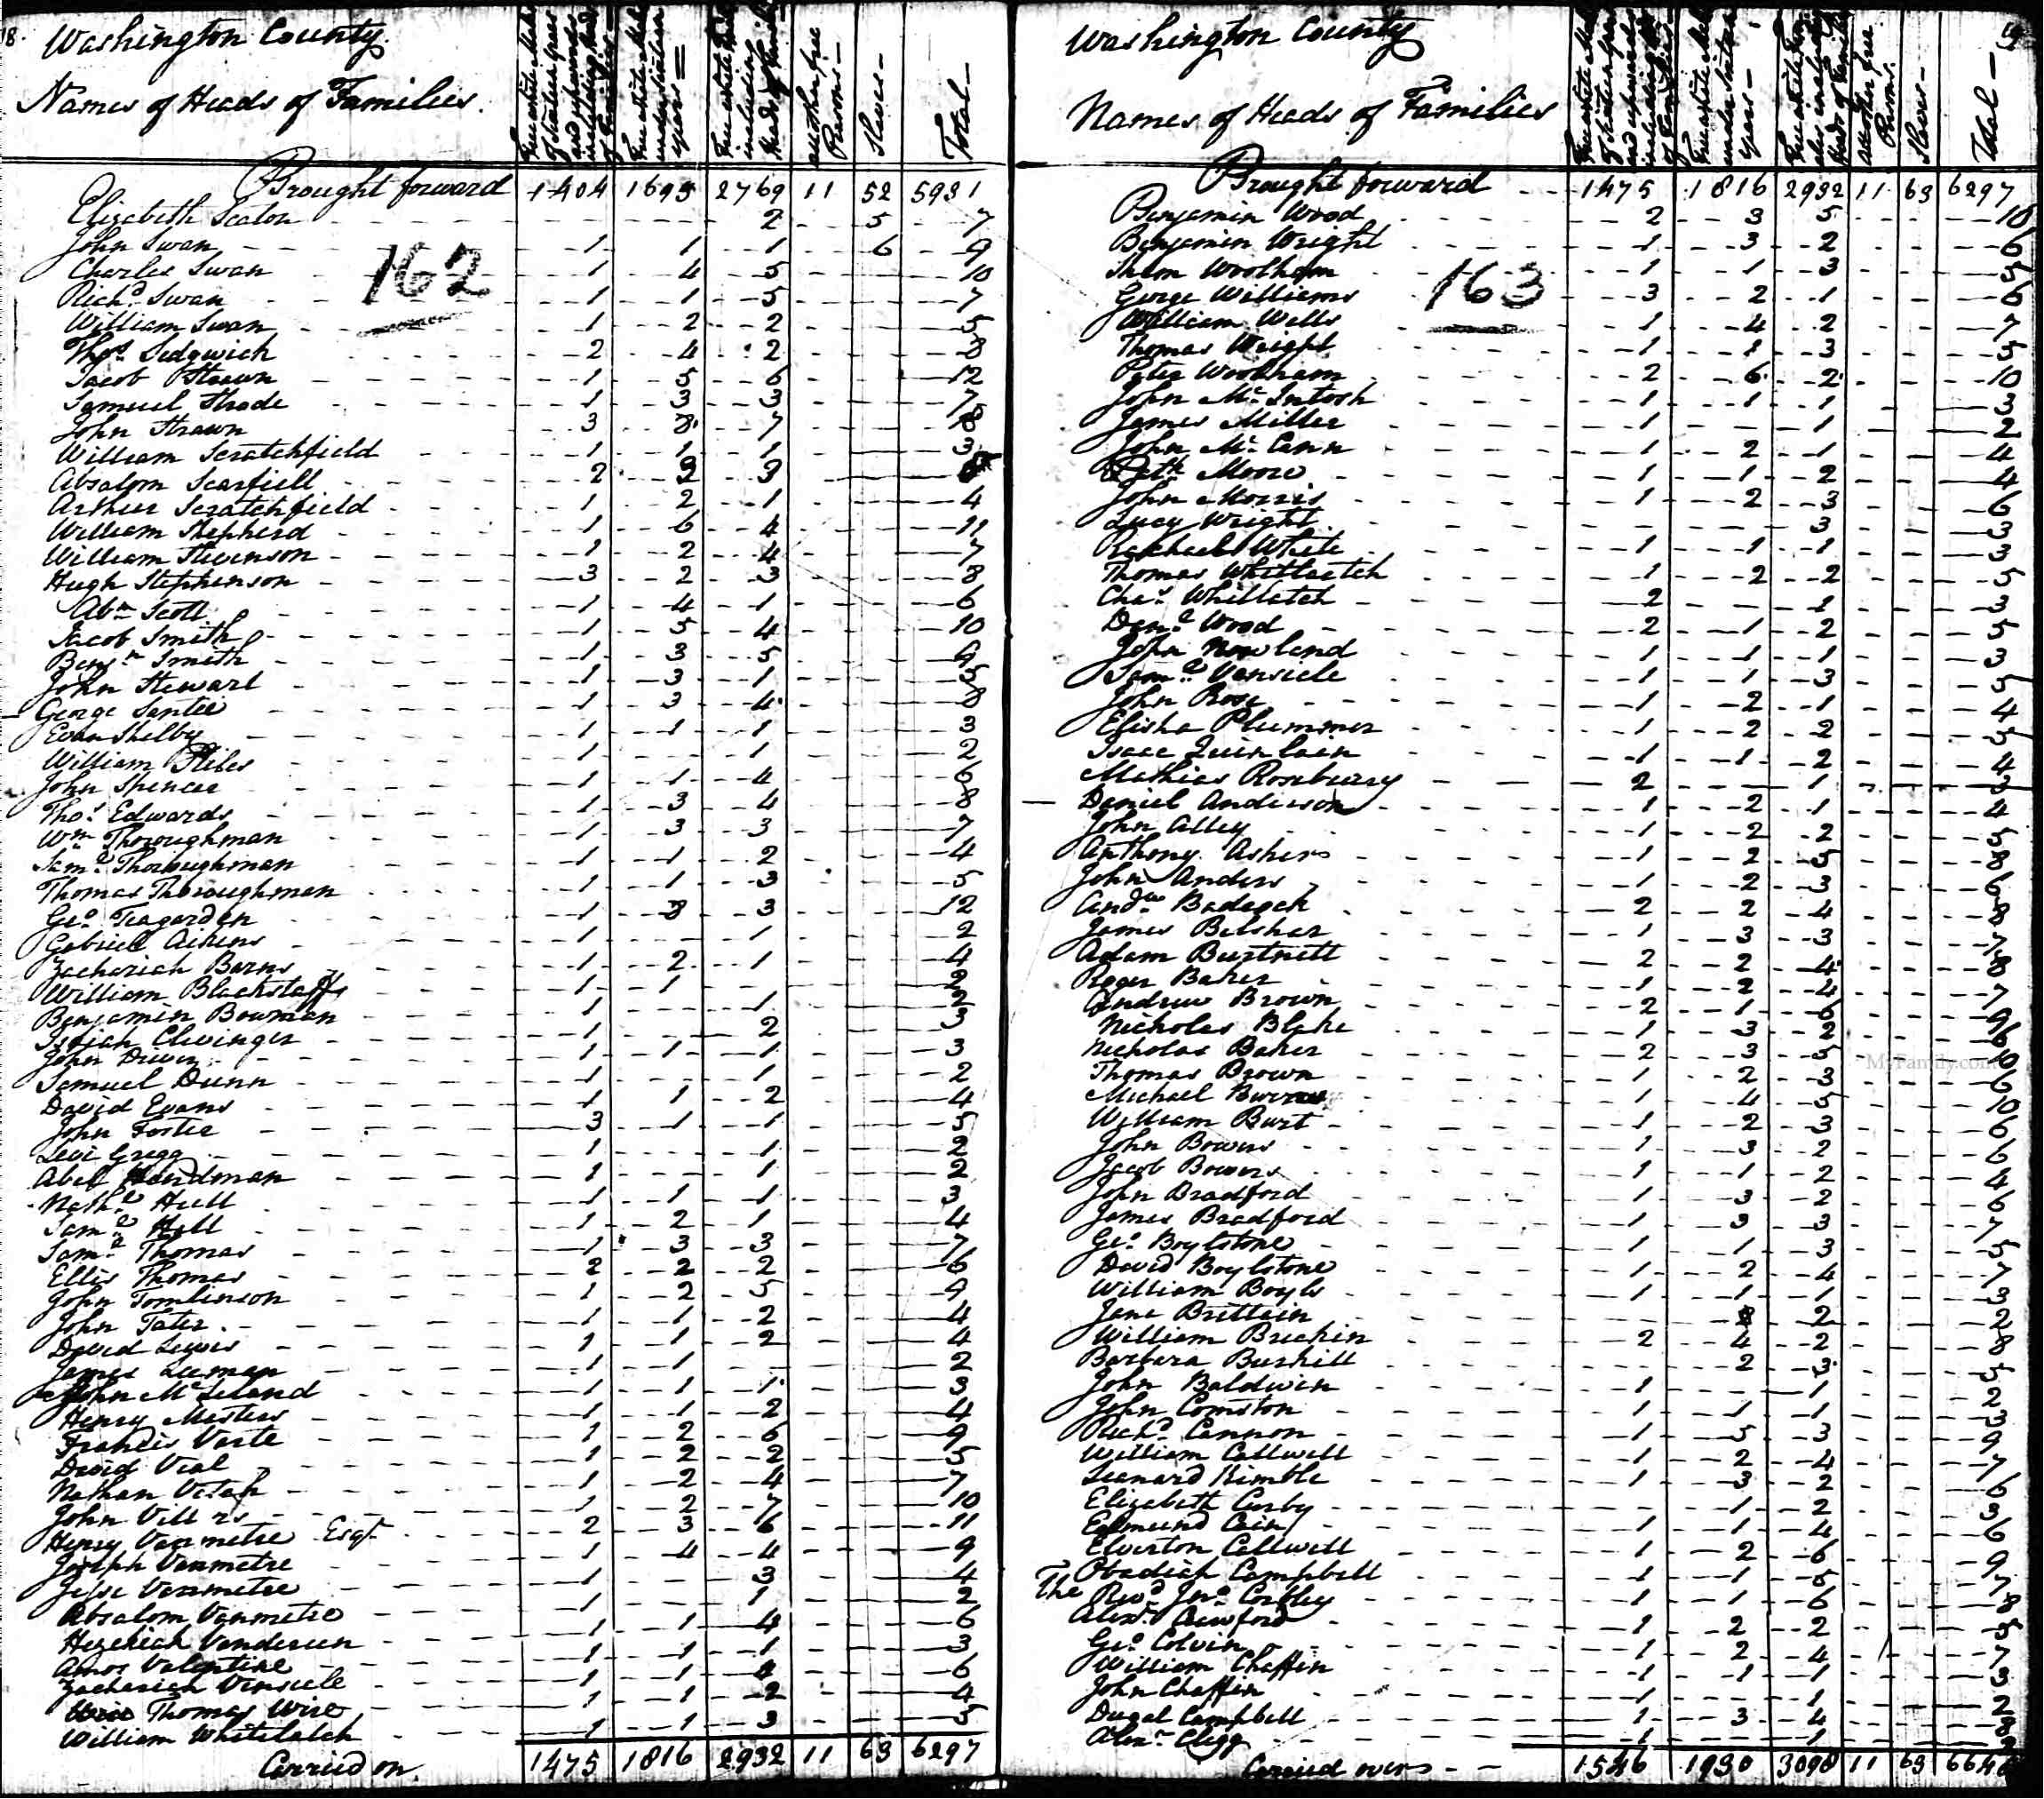 18.
Washington County.
Names of Heads of Families.
Free white Males of sixteen years and upwards including heads of Families
Free white Males under sixteen years
Free white including Heads of
all other free Persons
Slaves
Total
Brought forward 1404 1695 2769 11 52 5931
Elizabeth 2 5 7
John Swan 1 1 1 6 9
Charles Swan 1 4 5 10
162
Richd. Swan 1 1 5 7
William Swan 1 2 2 5
Thos. Sedgwick 2 4 2 8
Jacob Strawn 1 5 6 12
Samuel Strode 1 3 3 7
John Strawn 3 8 7 18
William Scratchfield 1 1 1 3
Absalom 2 3 3
Arthur Scratchfield 1 2 1 4
William Shepherd 1 6 4 11
William Stevenson 1 2 4 7
Hugh Stephenson 3 2 3 8
Abm. Scott 1 4 1 6
Jacob Smith 1 5 4 10
Benjn. Smith 1 3 5 9
John Stewart 1 3 1 5
George Santee 1 3 4 8
Evan Shelby 1 1 1 3
William Stiles 1 1 2
John Spencer 1 1 4 6
Thos. Edwards 1 3 4 8
Wm. Thoroughman 1 3 3 7
Saml. Thoroughman 1 1 2 4
Thomas Thoroughman 1 1 3 5
Geo. Teagarden 1 8 3 12
Gabriel Aikins 1 1 2
Zachariah Barns 1 2 1 4
William Blackstaff 1 1 2
Benjamin Bowman 1 1 2
Isaiah Clevinger 1 2 3
John Diver 1 1 1 3
Samuel Dunn 1 1 2
David Evans 1 1 2 4
John Foster 3 1 1 5
Levi Gregg 1 1 2
Abel Hendman 1 1 2
Nathl. Hull 1 1 1 3
Saml. Hull 1 2 1 4
Saml. Thomas 1 3 3 7
Ellis Thomas 2 2 2 6
John Tomlinson 1 2 5 9
John Tater 1 1 2 4
David Lewis 1 1 2 4
James Leeman 1 1 2
John McLeland 1 1 1 3
Henry Masters 1 1 2 4
Francis Varte 1 2 6 9
David Vial 1 2 2 5
Nathan 1 2 4 7
John 1 2 7 10
Henry Vanmetre Esqr. 2 3 6 11
Joseph Vanmetre 1 4 4 9
Jesse Vanmetre 1 3 4
Absalom Vanmetre 1 1 2
Hezekiah Vanderuen 1 1 4 6
Amos Valentine 1 1 1 3
Zachariah Vinsicle 1 1 4 6
Thomas Wire 1 1 2 4
William Whitelatch 1 1 3 5
Carried on 1475 1816 2932 11 63 6297
Washington County
Names of Heads of Families
Free white Males of sixteen years and upwards including heads of Families
Free white Males under sixteen years
Free white Females including Heads of Families
all other free Persons.
Slaves
Total
Brought forward 1475 1816 2932 11 63 6297
Benjamin Wood 2 3 5 10
Benjamin Wright 1 3 2 6
Woolham 1 1 3 5
163
George Williams 3 2 1 6
William Wells 1 4 2 7
Thomas Wright 1 1 3 5
Peter Woolham 2 6 2 10
John McIntosh 1 1 1 3
James Miller 1 1 2
John McCann 1 2 1 4
Moore 1 1 2 4
John Morris 1 2 3 6
Lucy Wright 3 3
Rachael White 1 1 1 3
Thomas Whitlaetch 1 2 2 5
Chas. Whitlatch 2 1 3
Danl. Wood 2 1 2 5
John Nowland 1 1 1 3
Saml. Vansicle 1 1 3 5
John Rose 1 2 1 4
Elisha Plummer 1 2 2 5
Isaac Quinlain 1 1 2 4
Mathias Rosebury 2 1 3
Daniel Anderson 1 2 1 4
John Alley 1 2 2 5
Anthony Ashers 1 2 5 8
John Anders 1 2 3 6
Andw. Badgeck 2 2 4 8
James Belshar 1 3 3 7
Adam Burtnett 2 2 4 8
Roger Baker 1 2 4 7
Andrew Brown 2 1 6 9
Nicholas Blake 1 3 2 6
Nicholas Baker 2 3 5 10
MyFamily.com
Thomas Brown 1 2 3 6
Michael 1 4 5 10
William Burt 1 2 3 6
John Bowers 1 3 2 6
Jacob Bowers 1 1 2 4
John Bradford 1 3 2 6
James Bradford 1 3 3 7
Geo. Boylstone 1 1 3 5
David Boylstone 1 2 4 7
William Boyls 1 1 1 3
Jane Brittain 2 2
William Brickin 2 4 2 8
Barbara Buskill 2 3 5
John Baldwin 1 1 2
John Comston 1 1 1 3
Richd. Cannon 1 5 3 9
William Callwell 1 2 4 7
Leanard Kimble 1 3 2 6
Elizabeth Carby 1 2 3
Edmund Cain 1 1 4 6
Elverton Callwell 1 2 6 9
Obadiah Campbell 1 1 5 7
The Revd. Jno. Corbley 1 1 6 8
Alexr. Crawford 1 2 2 5
Geo. Colvin 1 2 4 7
William Chaffin 1 1 1 3
John Chaffin 1 1 2
Dugal Campbell 1 3 4 8
Alexr. Clegg 1 1 2
Carried over 1546 1930 3098 11 63